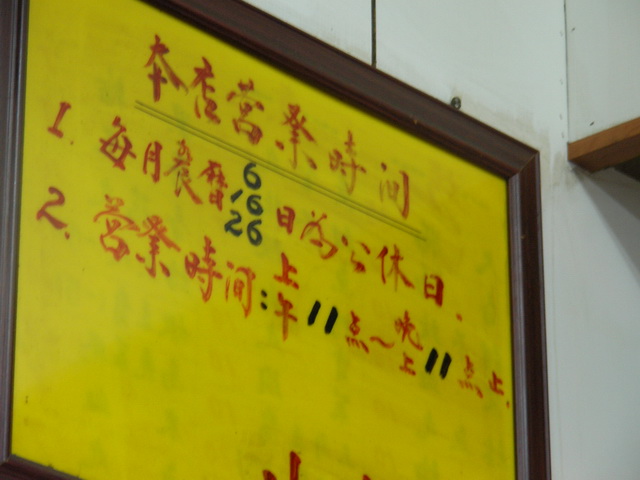 本店營業時间
1 每月農曆6 16 26日為公休日.
2. 營業時间:上午11点～晚上11点止.